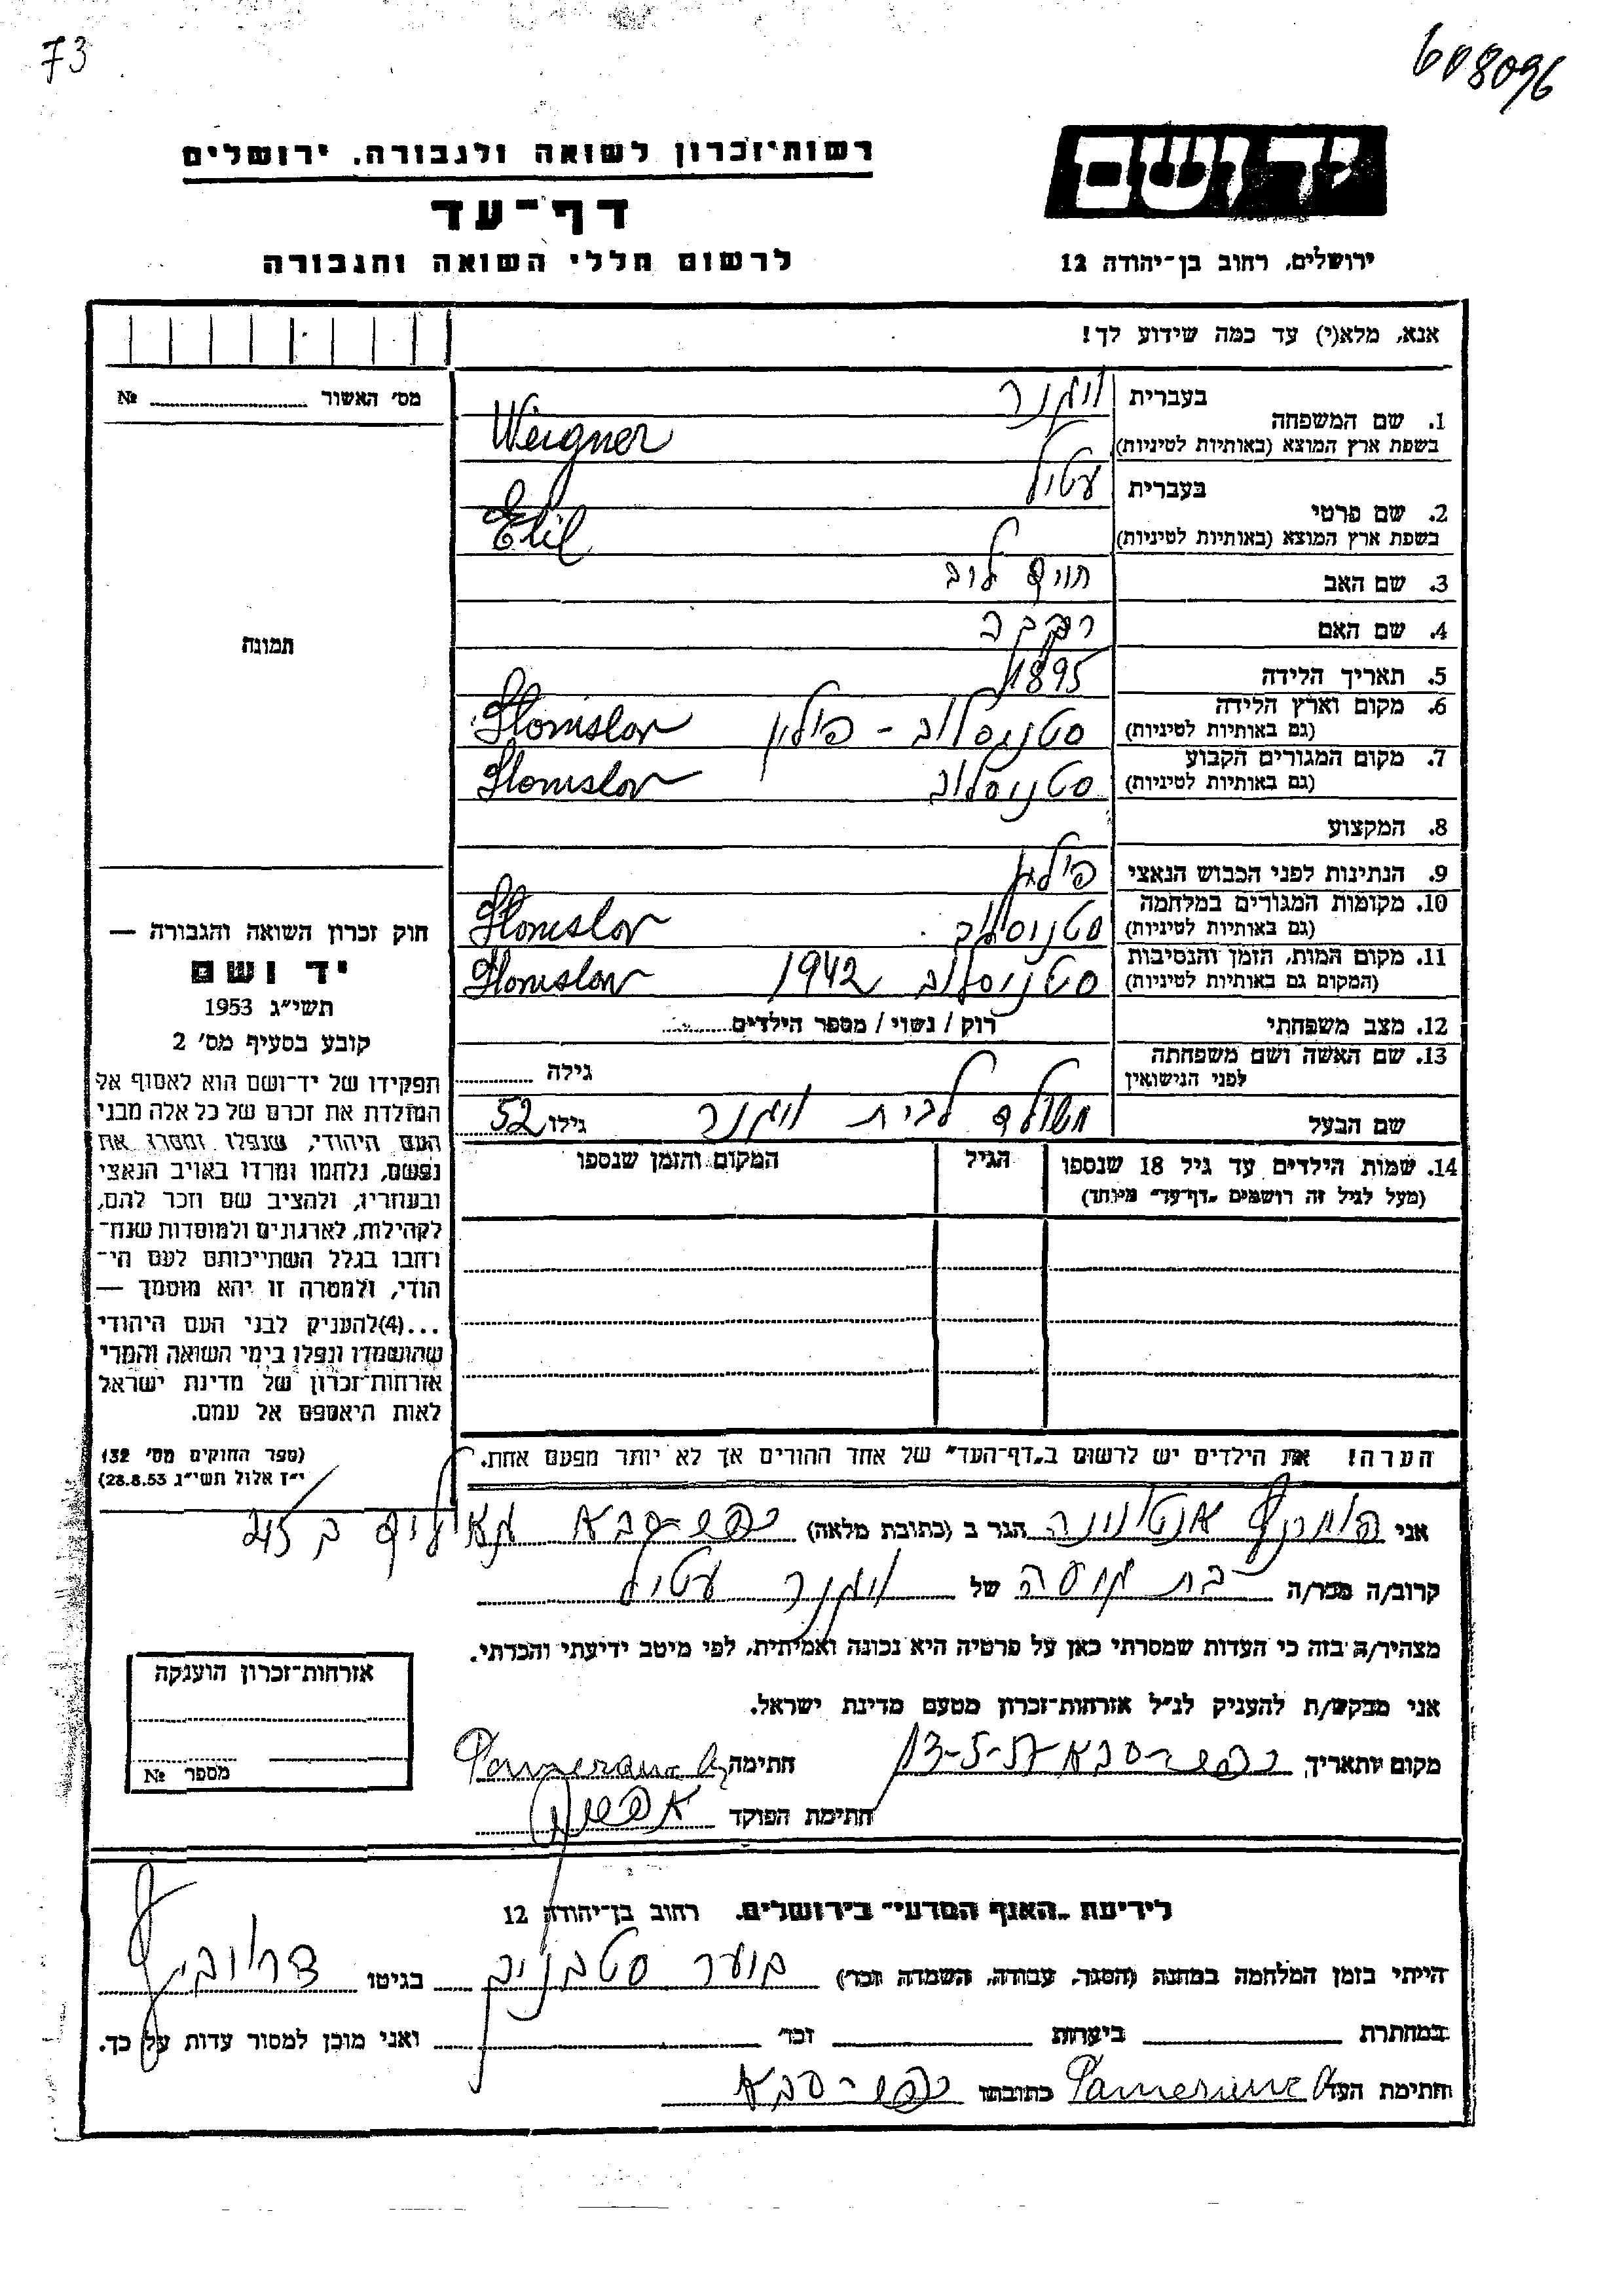 73
608096
יד ושם
רשות־זכרון לשואה ולגבורה, ירושלים
דף־עד
לרשום חללי השואה והגבורה
ירושלים, רחוב בן־יהודה 12
אנא, מלא(י) עד כמה שידוע לך!
מס׳ האשור № 
1. שם המשפחה בעברית ויגנר
בשפת ארץ המוצא (באותיות לטיניות) Weigner
2. שם פרטי בעברית עטיל
בשפת ארץ המוצא (באותיות לטיניות) Etil
3. שם האב חיים לוב
4. שם האם רבקה
5. תאריך הלידה 1895
6. מקום וארץ הלידה סטניסלוב - פולין Stanislav
(גם באותיות לטיניות)
7. מקום המגורים הקבוע סטניסלוב Stanislav
(גם באותיות לטיניות)
8. המקצוע
9. הנתינות לפני הכבוש הנאצי פולין
10. מקומות המגורים במלחמה סטניסלוב Stanislav
(גם באותיות לטיניות)
11. מקום המות, הזמן והנסיבות סטניסלוב 1942 Stanislav
(המקום גם באותיות לטיניות)
12. מצב משפחתי רוק / נשוי / מספר הילדים
13. שם האשה ושם משפחתה לפני הנישואין גילה
שם הבעל לבית ויגנר גילו 52
14. שמות הילדים עד גיל 18 שנספו הגיל המקום והזמן שנספו
(מעל לגיל זה רושמים „דף־עד״ מיוחד)
הערה! את הילדים יש לרשום ב„דף־העד״ של אחד ההורים אך לא יותר מפעם אחת.
תמונה
חוק זכרון השואה והגבורה —
יד ושם
תשי״ג 1953
קובע בסעיף מס׳ 2
תפקידו של יד־ושם הוא לאסוף אל
המולדת את זכרם של כל אלה מבני
העם היהודי, שנפלו ומסרו את
נפשם, נלחמו ומרדו באויב הנאצי
ובעוזריו, ולהציב שם וזכר להם,
לקהילות, לארגונים ולמוסדות שנח־
רבו בגלל השתייכותם לעם הי־
הודי, ולמטרה זו יהא מוסמך —
...(4) להעניק לבני העם היהודי
שהושמדו ונפלו בימי השואה והמרי
אזרחות־זכרון של מדינת ישראל
לאות היאספם אל עמם.
(ספר החוקים מס׳ 132
י״ז אלול תשי״ג 28.8.53)
אני אנטונינה הגר ב (כתובת מלאה) כפר-סבא
קרוב/ה מכר/ה בת של ויגנר עטיל
מצהיר/ה בזה כי העדות שמסרתי כאן על פרטיה היא נכונה ואמיתית, לפי מיטב ידיעתי והכרתי.
אני מבקש/ת להעניק לנ״ל אזרחות־זכרון מטעם מדינת ישראל.
מקום ותאריך כפר-סבא 13-5-57 חתימה
חתימת הפוקד
אזרחות־זכרון הוענקה
מספר №
לידיעת „האגף המדעי״ בירושלים, רחוב בן־יהודה 12
הייתי בזמן המלחמה במחנה (הסגר, עבודה, השמדה וכד׳) בגיטו
במחתרת ביערות וכד׳ ואני מוכן למסור עדות על כך.
חתימת העד כתובתו כפר-סבא